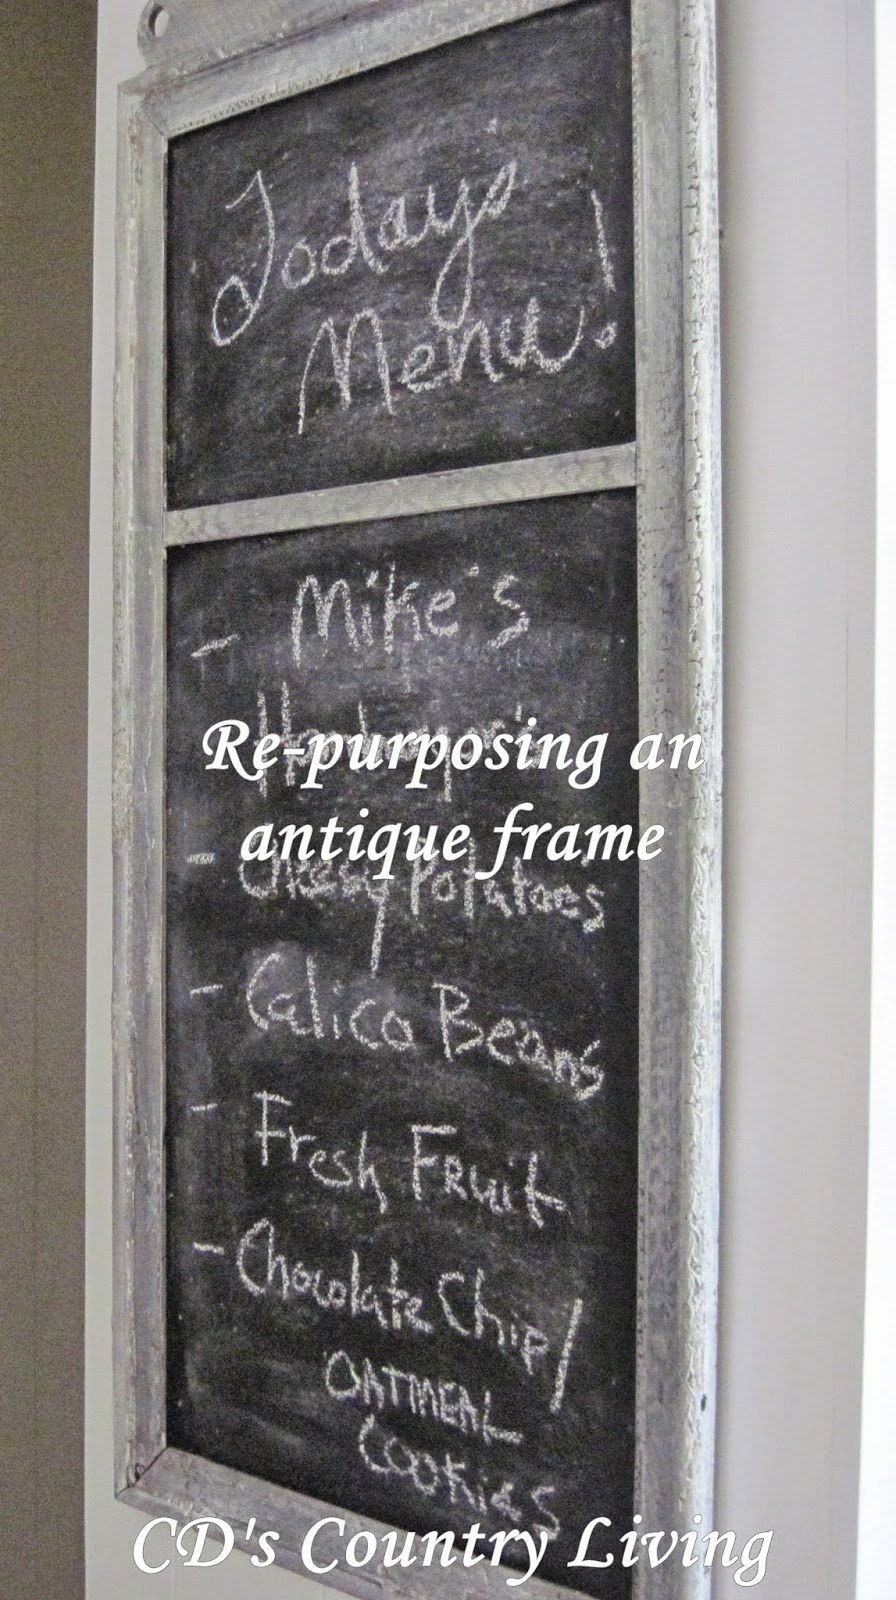 Today's
Menu!
- Mike's
Re-purposing an
antique frame
- Cheesy Potatoes
- Calico Beans
- Fresh Fruit
- Chocolate Chip/
OATMEAL
Cookies
CD's Country Living